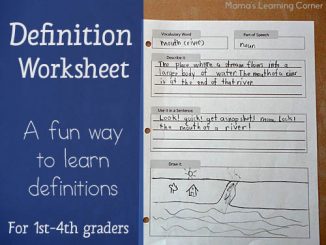 Mama's Learning Corner
Definition
Worksheet
A fun way
to learn
definitions
For 1st-4th graders
Vocabulary Word
Part of Speech
mouth (river)
noun
Describe it
The place where a stream flows into a
larger body of water. The mouth of a river
is at the end of that river
Use it in a Sentence
Look! guys! get a snapshot! mom, look!
the mouth of a river!
Draw it